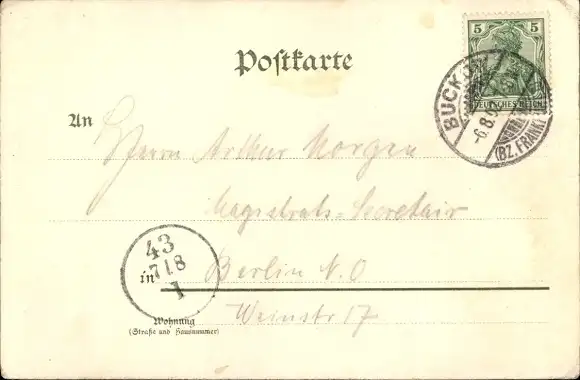 5 5
DEUTSCHES REICH
BUCKOW
6.8.
(BZ. FRANKF
Postkarte
An
Herrn Arthur Morgen
Magistrats=Secretair
43
7/8
1
in Berlin N.O
Weinstr 17
Wohnung
(Straße und Hausnummer)